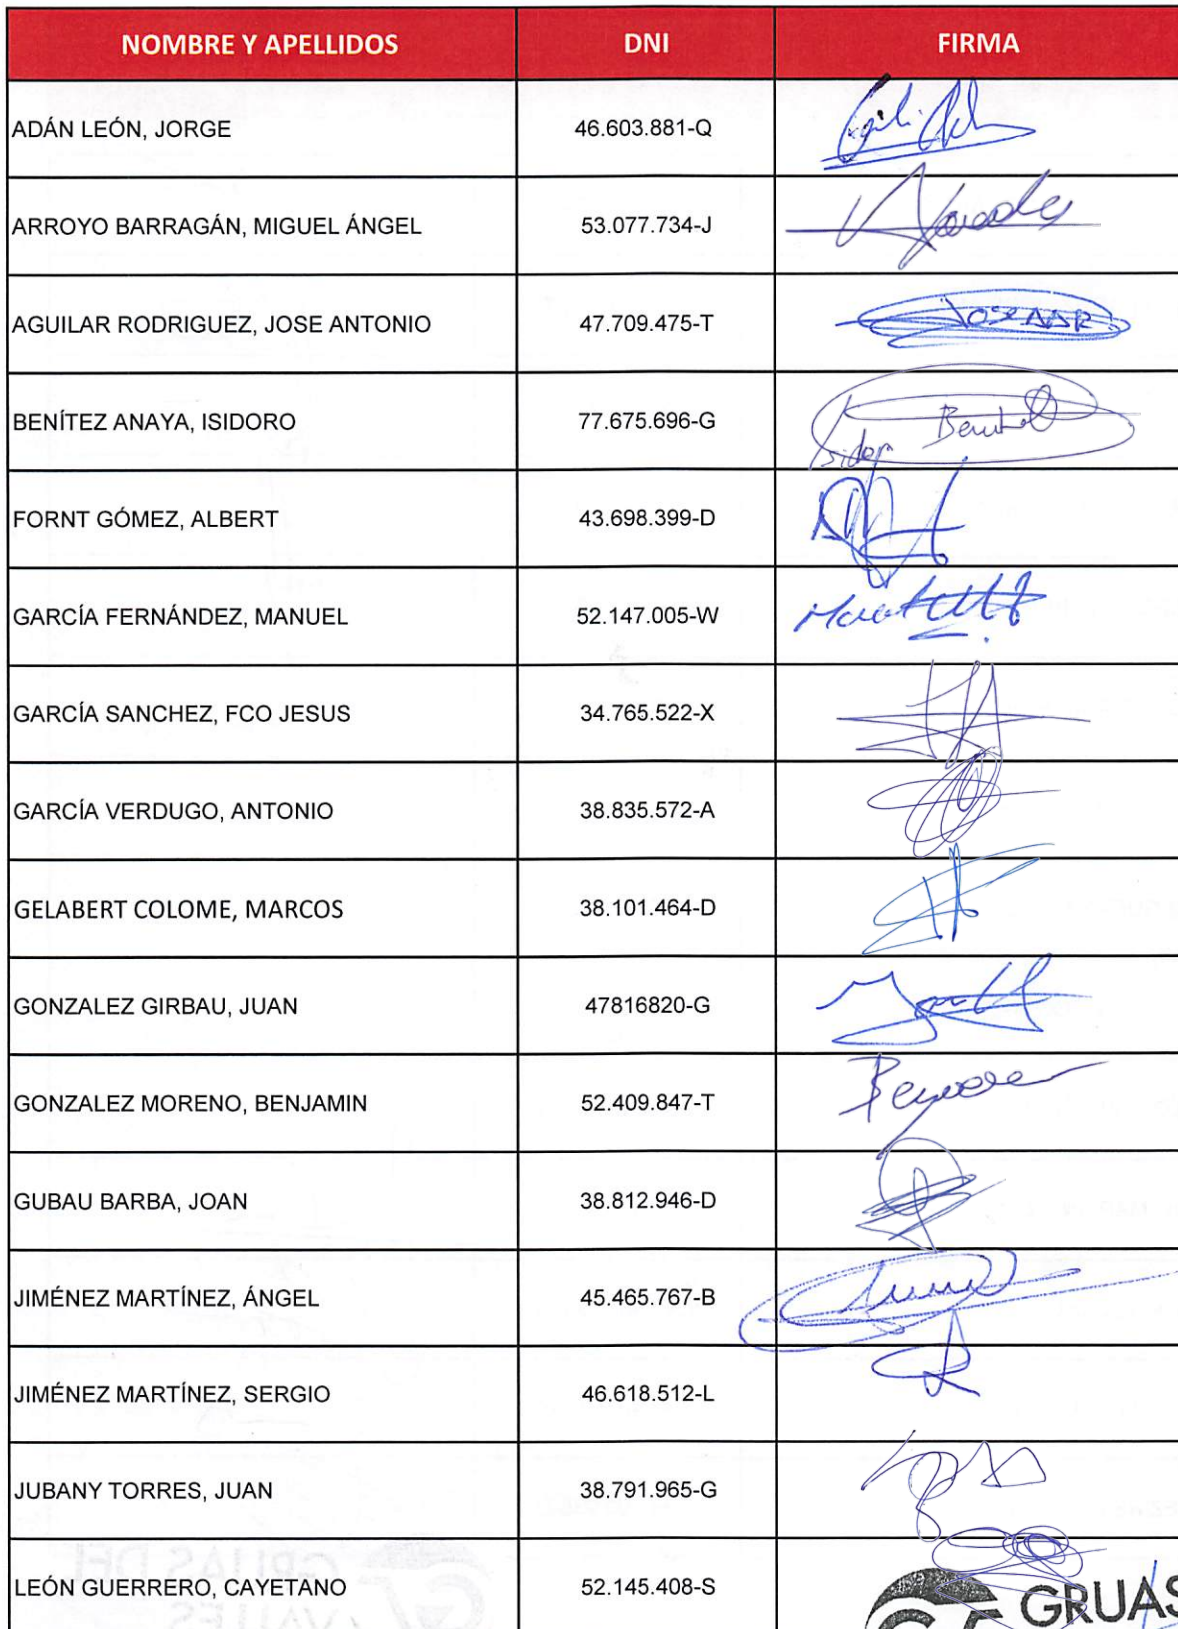 NOMBRE Y APELLIDOS DNI FIRMA
ADÁN LEÓN, JORGE 46.603.881-Q
ARROYO BARRAGÁN, MIGUEL ÁNGEL 53.077.734-J
AGUILAR RODRIGUEZ, JOSE ANTONIO 47.709.475-T
BENÍTEZ ANAYA, ISIDORO 77.675.696-G
FORNT GÓMEZ, ALBERT 43.698.399-D
GARCÍA FERNÁNDEZ, MANUEL 52.147.005-W
GARCÍA SANCHEZ, FCO JESUS 34.765.522-X
GARCÍA VERDUGO, ANTONIO 38.835.572-A
GELABERT COLOME, MARCOS 38.101.464-D
GONZALEZ GIRBAU, JUAN 47816820-G
GONZALEZ MORENO, BENJAMIN 52.409.847-T
GUBAU BARBA, JOAN 38.812.946-D
JIMÉNEZ MARTÍNEZ, ÁNGEL 45.465.767-B
JIMÉNEZ MARTÍNEZ, SERGIO 46.618.512-L
JUBANY TORRES, JUAN 38.791.965-G
LEÓN GUERRERO, CAYETANO 52.145.408-S
GRUAS